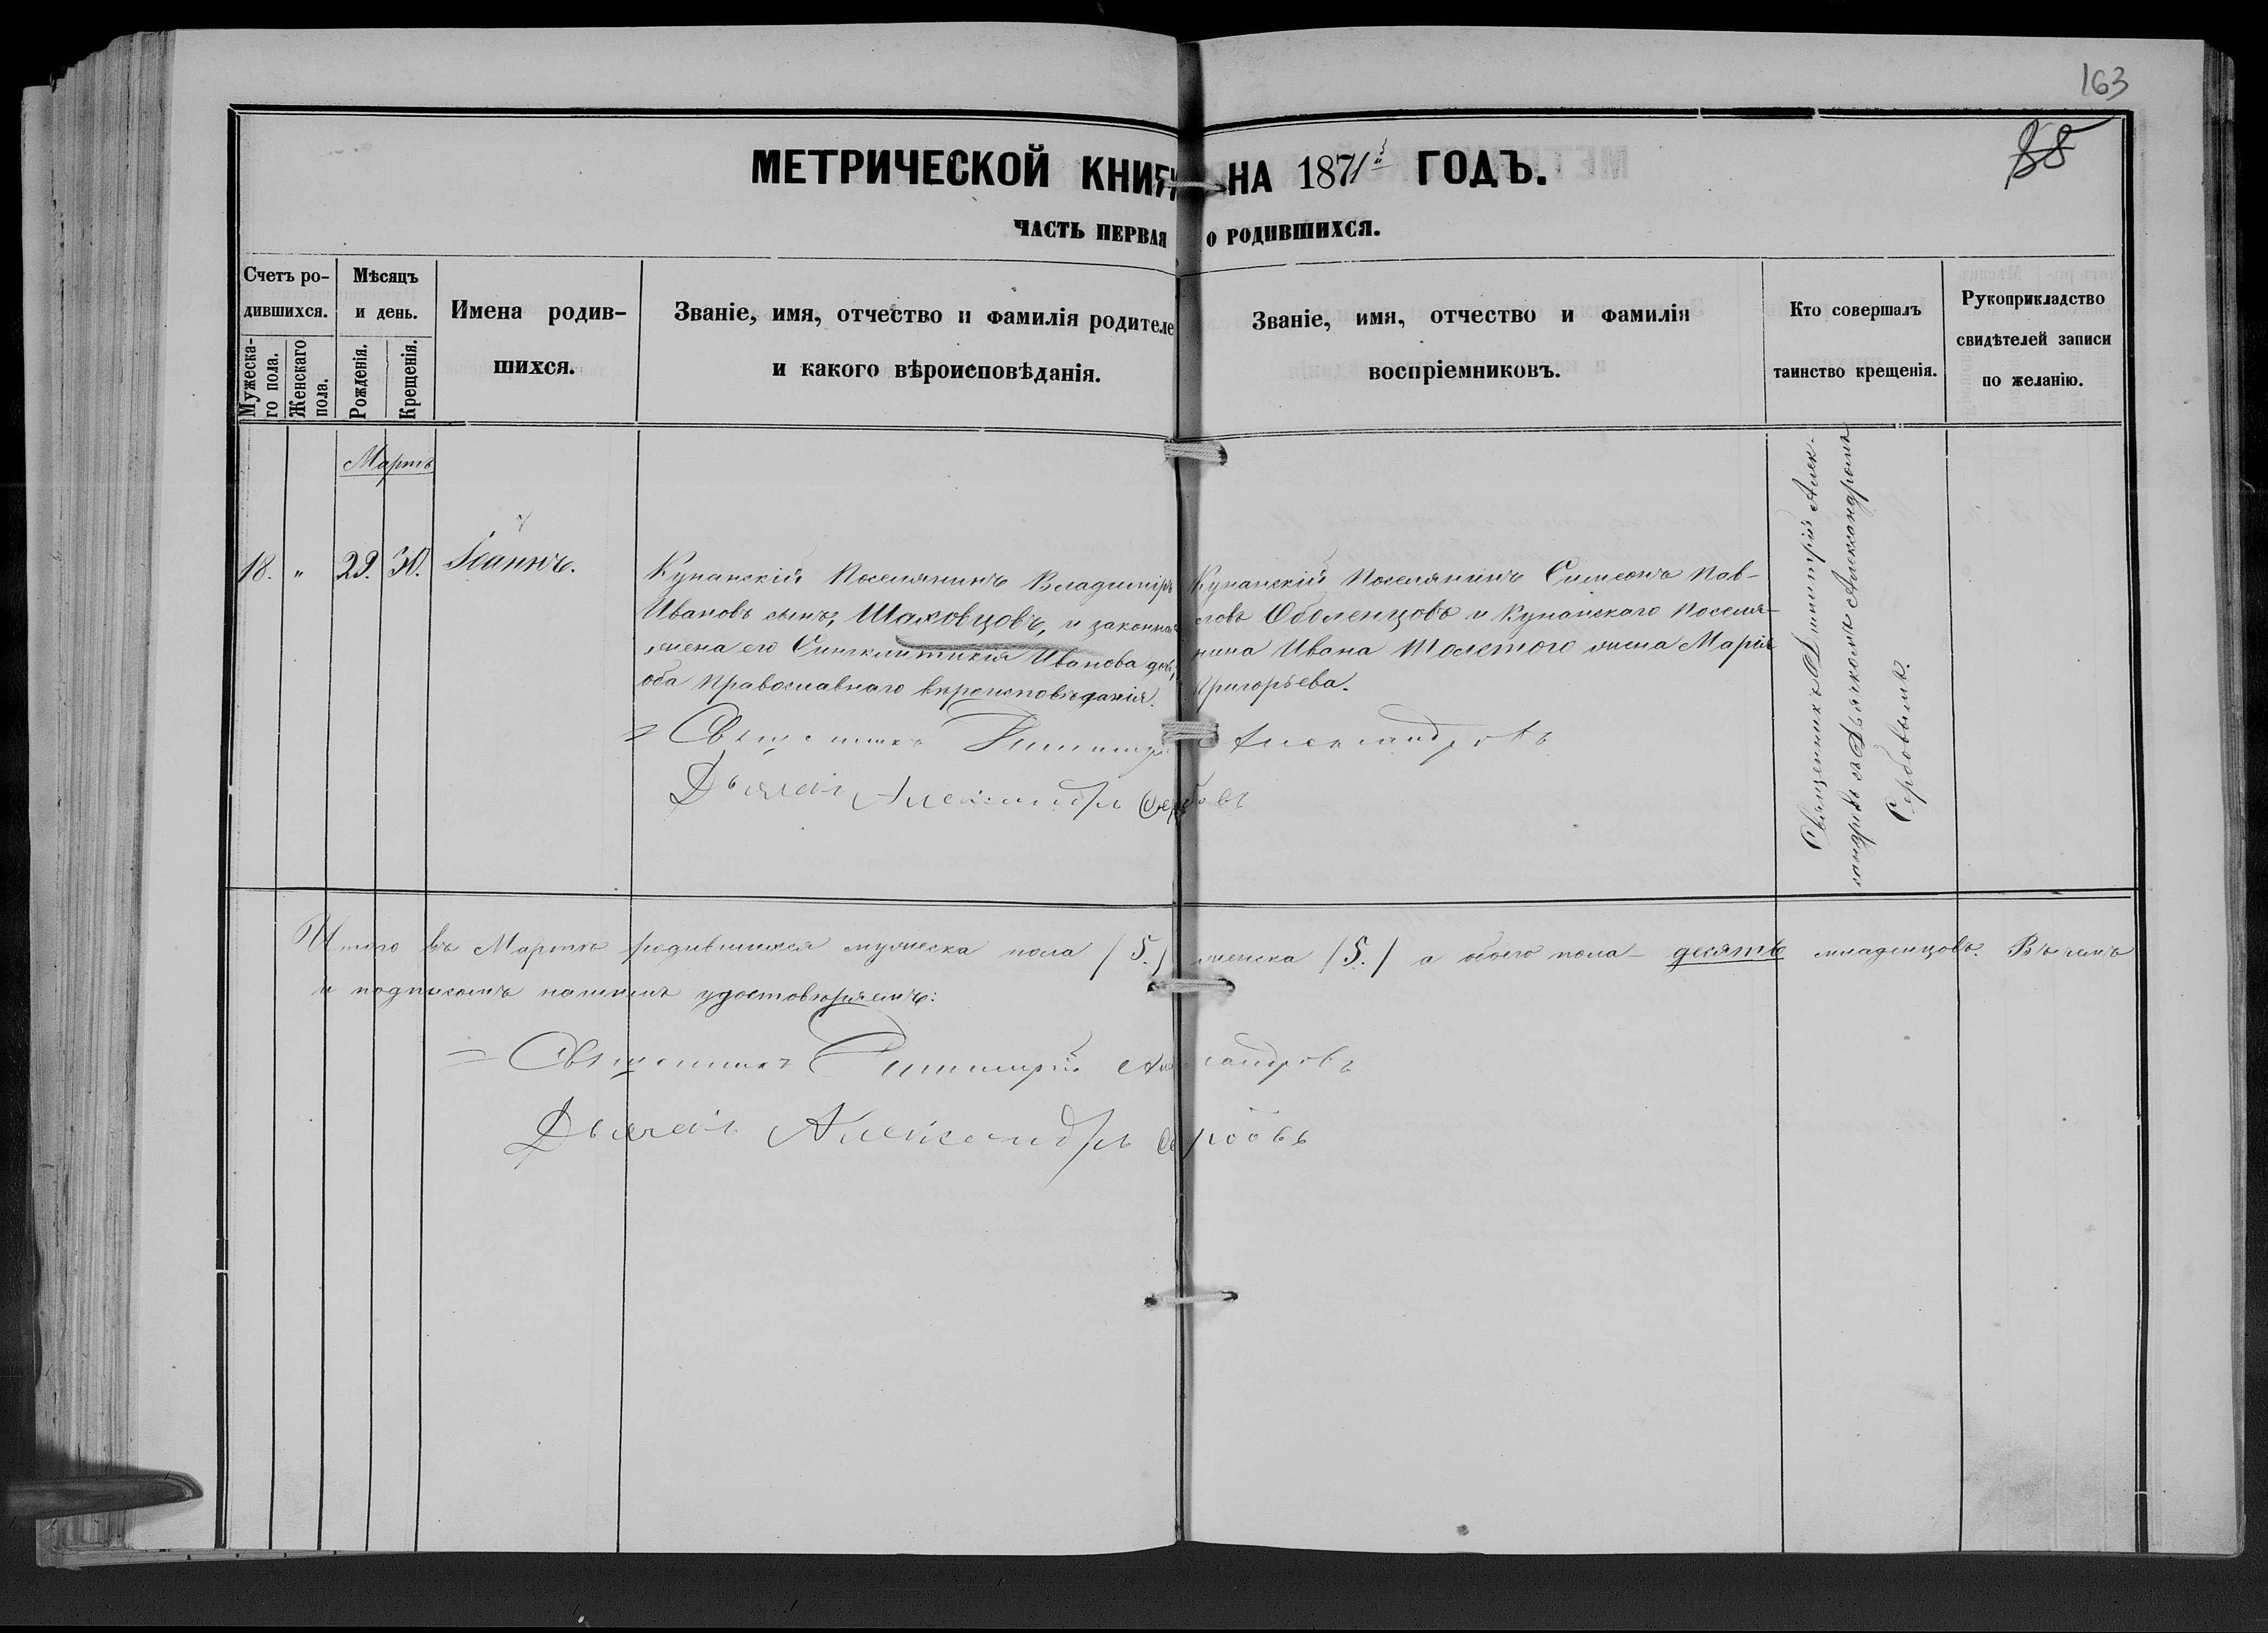 163
88
МЕТРИЧЕСКОЙ КНИГИ НА 1871й ГОДЪ.
ЧАСТЬ ПЕРВАЯ О РОДИВШИХСЯ.
Счетъ ро-
дившихся.
Мужеска-
го пола.
Женскаго
пола.
Мѣсяцъ
и день.
Рожденія.
Крещенія.
Имена родив-
шихся.
Званіе, имя, отчество и фамилія родителе
и какого вѣроисповѣданія.
Званіе, имя, отчество и фамилія
воспріемниковъ.
Кто совершалъ
таинство крещенія.
Рукоприкладство
свидѣтелей записи
по желанію.
Мартъ
18. " 29. 30. Іоаннъ.
Купанскій Поселянинъ Владиміръ
Ивановъ сынъ, Шаховцовъ, и законная
жена его Синклитикія Иванова дочь,
оба Православнаго вѣроисповѣданія.
Купанскій Поселянинъ Симеонъ Пав-
ловъ Оболенцовъ и Купанскаго Поселя-
нина Ивана Толстого жена Марія
Григорьева.
Священникъ Димитрій Алек-
сандровъ съ Дьячкомъ Александромъ
Сербовымъ.
Священникъ Димитрій Александровъ
Дьячекъ Александръ Сербовъ
Итого въ Мартѣ родившихся мужеска пола /5./ женска /5./ а обоего пола - десять младенцовъ. Въ чемъ
и подписомъ нашимъ удостовѣряемъ:
Священникъ Димитрій Александровъ
Дьячекъ Александръ Сербовъ